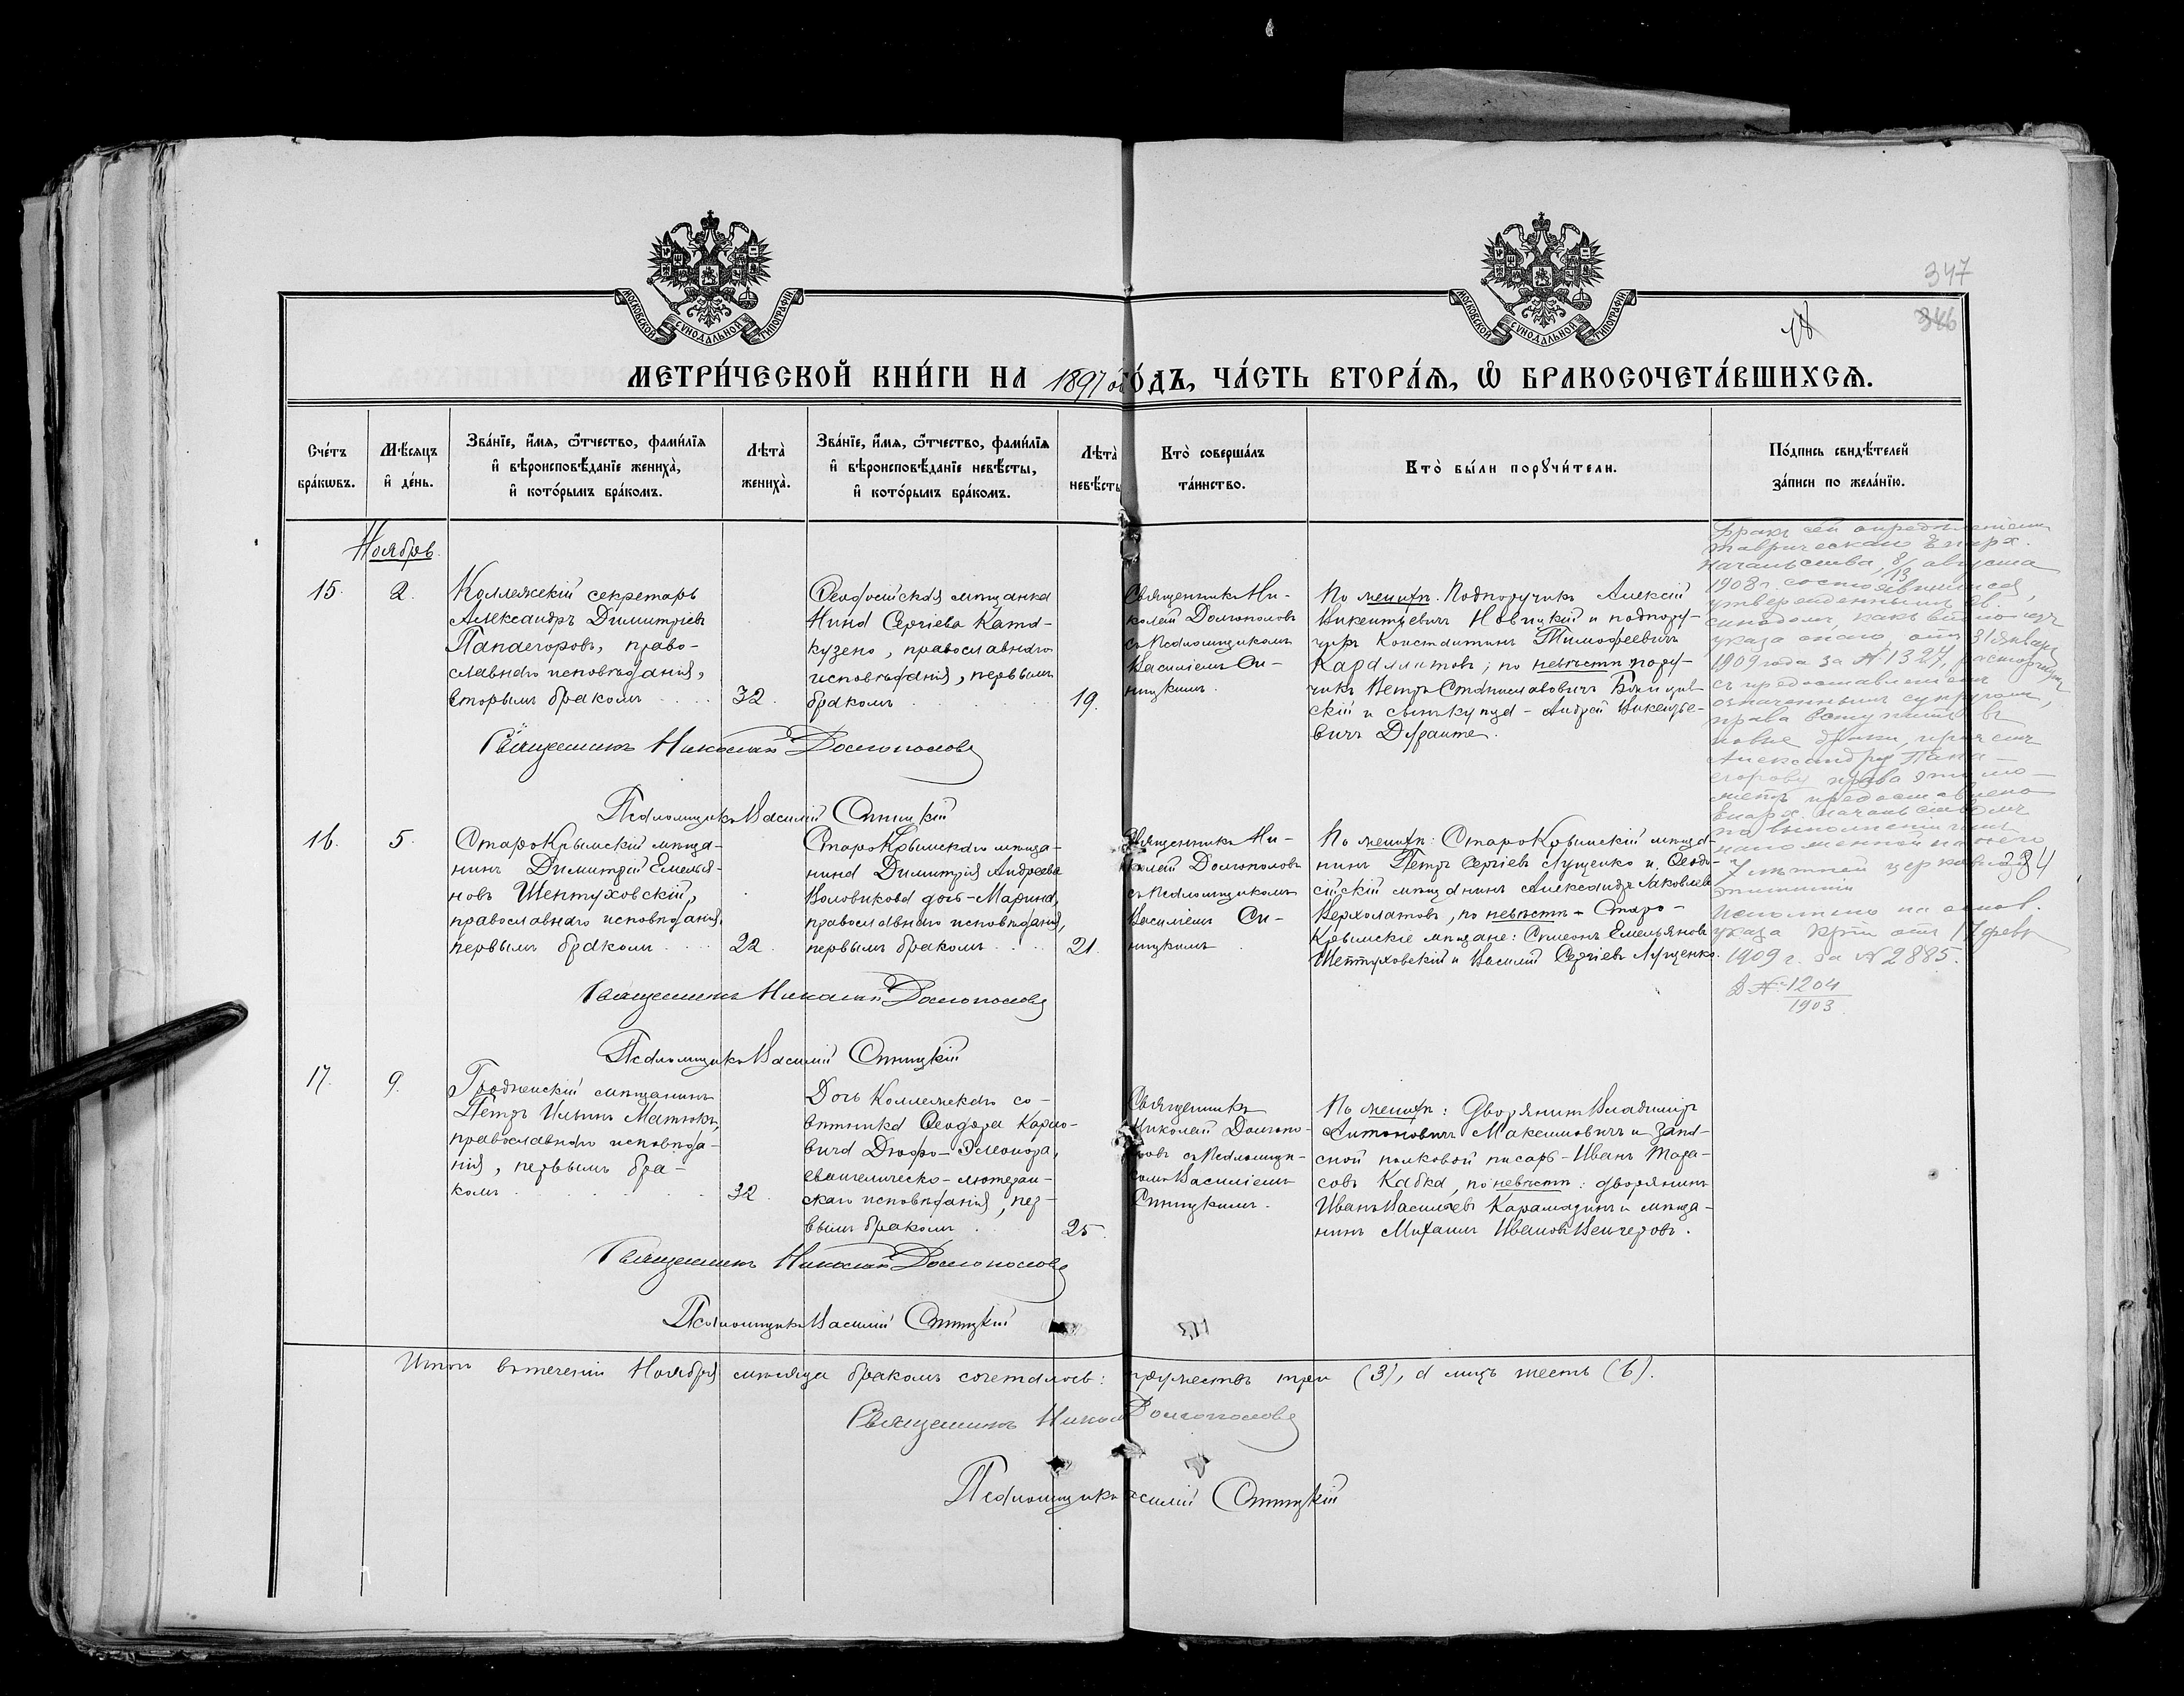 347
346
18
МОСКОВСКОЙ СѴНОДАЛЬНОЙ ТИПОГРАФІИ
МОСКОВСКОЙ СѴНОДАЛЬНОЙ ТИПОГРАФІИ
МЕТРИ́ЧЕСКОЙ КНИ́ГИ НА 1897 ой ГО́ДЪ, ЧА́СТЬ ВТОРА́Ѧ, Ѽ БРАКОСОЧЕТА́ВШИХСѦ.
Сче́тъ
бра́кѡвъ.
Мѣ́сяцъ
и҆ де́нь.
Зва́нїе, и҆́мя, ѻ҆́тчество, фами́лїя
и҆ вѣроисповѣ́данїе жениха̀,
и҆ кото́рымъ бра́комъ.
Лѣта̀
жениха̀.
Зва́нїе, и҆́мя, ѻ҆́тчество, фами́лїя
и҆ вѣроисповѣ́данїе невѣ́сты,
и҆ кото́рымъ бра́комъ.
Лѣта̀
невѣ́сты
Кто̀ соверша́лъ
та́инство.
Кто̀ бы́ли порꙋчи́тели.
По́дпись свидѣ́телей
за́писи по жела́нїю.
Ноябрь.
15.
2.
Коллежскій секретарь
Александръ Димитріевъ
Папаегоровъ, право-
славнаго исповѣданія,
вторымъ бракомъ
32.
Ѳеодосійская мѣщанка
Нина Сергіева Ката-
кузено, православнаго
исповѣданія, первымъ
бракомъ
19.
Священникъ Ни-
колай Долгополовъ
съ Псаломщикомъ
Василіемъ Си-
ницкимъ.
По женихѣ. Подпоручикъ Алексѣй
Викентіевичъ Новицкій и подпору-
чикъ Константинъ Тимофеевичъ
; по невѣстѣ пору-
чикъ Петръ Станиславовичъ
скій и сынъ купца - Андрей Викентье-
вичъ Дуранте.
Бракъ сей опредѣленіемъ
таврическаго Епарх.
начальства, 8/13 августа
1908 г. состоявшимся,
утвержденнымъ Св.
синодомъ, какъ видно изъ
указа онаго, отъ 31 января
1909 года за № 1327, расторгнутъ
съ предоставленіемъ
означеннымъ супругамъ,
права вступить въ
новые браки, при семъ
Александру Папа-
егорову право это мо-
жетъ предоставлено
Епарх. начальствомъ
по выполненіи имъ
наложенной на него
7 лѣтней церковной
эпитиміи
384
Исполнено на основ.
указа отъ 17 февр
1909 г. за № 2885.
Д. № 1204
1903
Священникъ Николай Долгополовъ
Псаломщикъ Василій Синицкій
16.
5.
СтароКрымскій мѣща-
нинъ Димитрій Емелья-
новъ Шептуховскій,
православнаго исповѣданія,
первымъ бракомъ
22
СтароКрымскаго мѣща-
нина Димитрія Андреева
Воловикова дочь - Марина,
православнаго исповѣданія,
первымъ бракомъ
21.
Священникъ Ни-
колай Долгополовъ
съ Псаломщикомъ
Василіемъ Си-
ницкимъ
По женихѣ: СтароКрымскій мѣща-
нинъ Петръ Сергіевъ Лущенко и Ѳеодо-
сійскій мѣщанинъ Александръ Іаковлевъ
Верхолатовъ, по невѣстѣ - Старо-
Крымскіе мѣщане: Симеонъ Емельяновъ
Шептуховскій и Василій Сергіевъ Лущенко.
Священникъ Николай Долгополовъ
Псаломщикъ Василій Синицкій
17.
9.
Гродненскій мѣщанинъ
Петръ Ильинъ Матюкъ,
православнаго исповѣда-
нія, первымъ бра-
комъ
32.
Дочь Коллежскаго со-
вѣтника Ѳеодора Карло-
вича Дюфо - Элеонора,
евангелическо-лютеран-
скаго исповѣданія, пер-
вымъ бракомъ
25.
Священникъ
Николай Долгопо-
ловъ съ Псаломщи-
комъ Василіемъ
Синицкимъ.
По женихѣ: Дворянинъ Владиміръ
Антоновичъ Максимовичъ и запа-
сной полковой писарь - Иванъ Тара-
совъ Кабка, по невѣстѣ: дворянинъ
Иванъ Васильевъ Карамазинъ и мѣща-
нинъ Михаилъ Ивановъ Венчеровъ.
Священникъ Николай Долгополовъ
Псаломщикъ Василій Синицкій
Итого въ теченіи Ноября мѣсяца бракомъ сочеталось: супружествъ три (3), а лицъ шесть (6).
Священникъ Николай Долгополовъ
Псаломщикъ Василій Синицкій